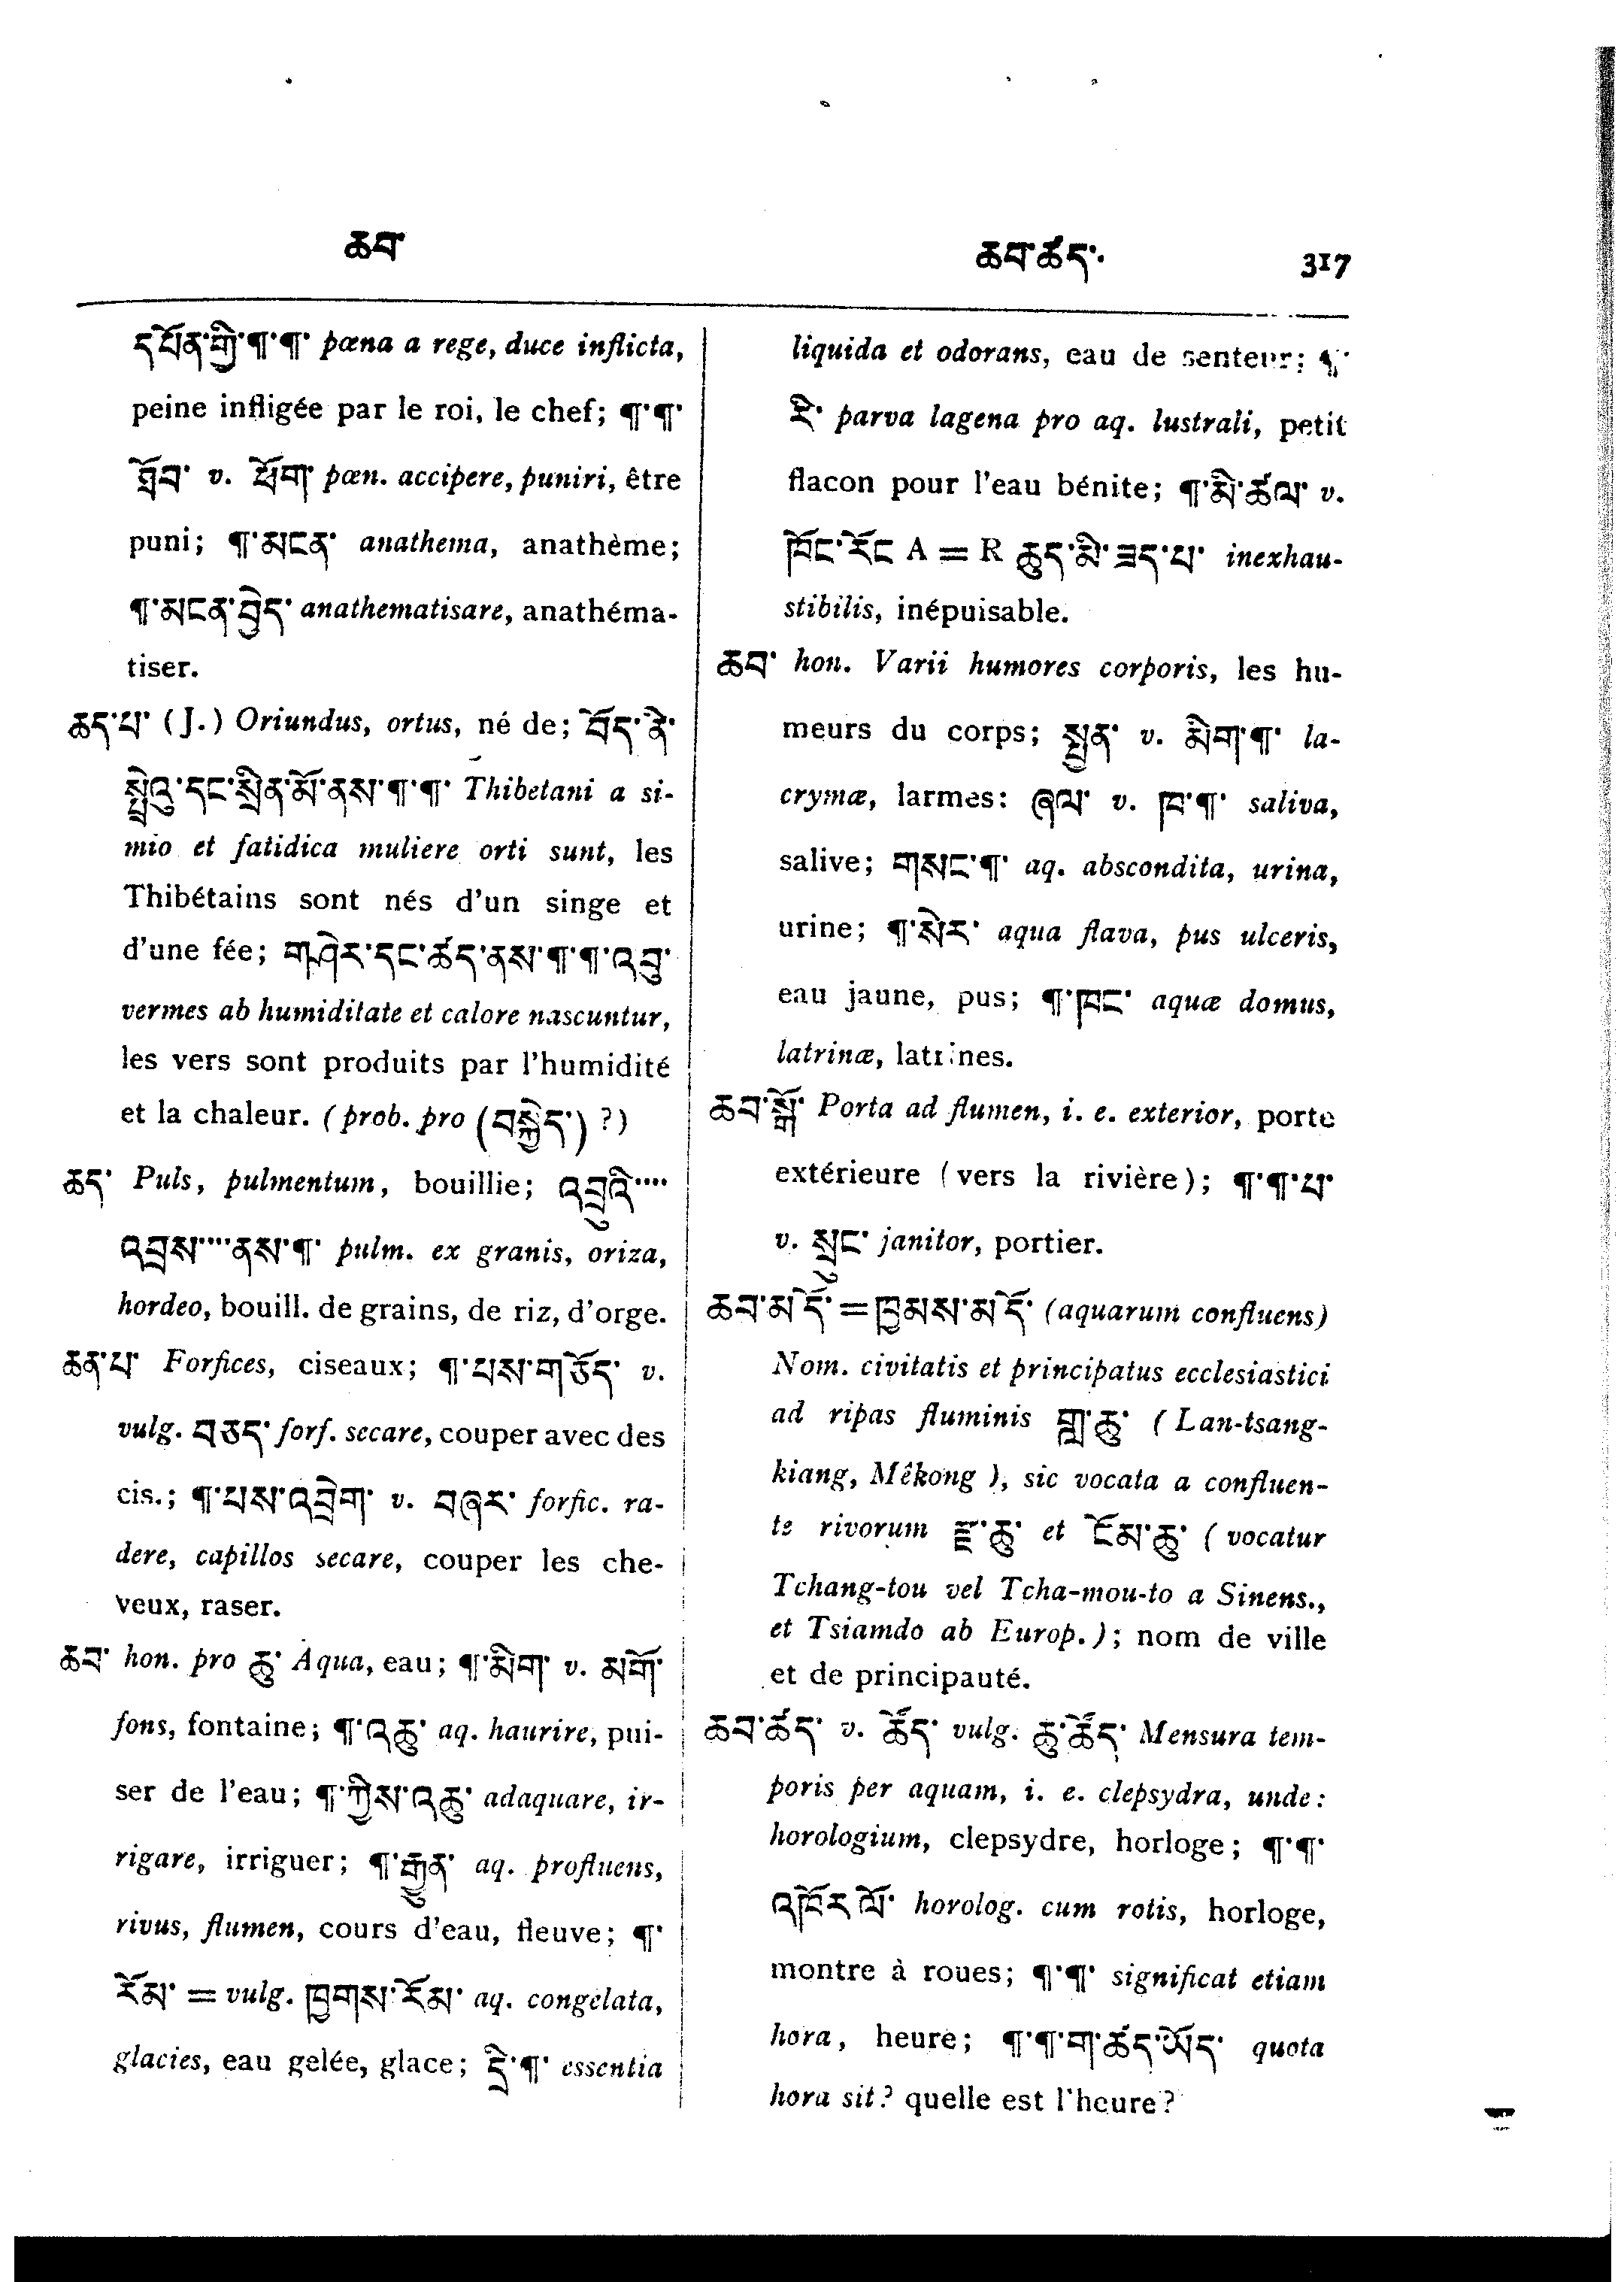 ཆབ་
ཆབ་ཚད་
317
དཔོན་གྱི་¶་¶་ pœna a rege, duce inflicta,
peine infligée par le roi, le chef; ¶་¶་
ཐོབ་ v. ཕོག་ pœn. accipere, puniri, être
puni; ¶་མངན་ anathema, anathème;
¶་མངན་བྱེད་ anathematisare, anathéma-
tiser.
ཆད་པ་ (J.) Oriundus, ortus, né de; བོད་ནི་
སྤྲེའུ་དང་སྲིན་མོ་ནས་¶་¶་ Thibetani a si-
mio et fatidica muliere orti sunt, les
Thibétains sont nés d'un singe et
d'une fée; གཤེར་དང་ཚད་ནས་¶་¶་འབུ་
vermes ab humiditate et calore nascuntur,
les vers sont produits par l'humidité
et la chaleur. (prob. pro (བསྐྱེད་) ?)
ཆད་ Puls, pulmentum, bouillie; འབྲུའི་····
འབྲས་····ནས་¶་ pulm. ex granis, oriza,
hordeo, bouill. de grains, de riz, d'orge.
ཆན་པ་ Forfices, ciseaux; ¶་པས་གཅོད་ v.
vulg. བཅད་ forf. secare, couper avec des
cis.; ¶་པས་འབྲེག་ v. བཞར་ forfic. ra-
dere, capillos secare, couper les che-
veux, raser.
ཆབ་ hon. pro ཆུ་ Aqua, eau; ¶་མིག་ v. མགོ་
fons, fontaine; ¶་འཆུ་ aq. haurire, pui-
ser de l'eau; ¶་ཀྱིས་འཆུ་ adaquare, ir-
rigare, irriguer; ¶་རྒྱུན་ aq. profluens,
rivus, flumen, cours d'eau, fleuve; ¶་
རོམ་ = vulg. ཁྱགས་རོམ་ aq. congelata,
glacies, eau gelée, glace; དྲི་¶་ essentia
liquida et odorans, eau de senteur; ¶་
རི་ parva lagena pro aq. lustrali, petit
flacon pour l'eau bénite; ¶་མི་ཚལ་ v.
ཁོང་རོང A = R ཆུད་མི་ཟད་པ་ inexhau-
stibilis, inépuisable.
ཆབ་ hon. Varii humores corporis, les hu-
meurs du corps; སྤྱན་ v. མིག་¶་ la-
crymæ, larmes: ཞལ་ v. ཁ་¶་ saliva,
salive; གསང་¶་ aq. abscondita, urina,
urine; ¶་སེར་ aqua flava, pus ulceris,
eau jaune, pus; ¶་ཁང་ aquæ domus,
latrinæ, latrines.
ཆབ་སྒོ་ Porta ad flumen, i. e. exterior, porte
extérieure (vers la rivière); ¶་¶་པ་
v. སྲུང་ janitor, portier.
ཆབ་མདོ་=ཁྱམས་མདོ་ (aquarum confluens)
Nom. civitatis et principatus ecclesiastici
ad ripas fluminis ཟླ་ཆུ་ (Lan-tsang-
kiang, Mêkong), sic vocata a confluen-
te rivorum རྫ་ཆུ་ et ངོམ་ཆུ་ (vocatur
Tchang-tou vel Tcha-mou-to a Sinens.,
et Tsiamdo ab Europ.); nom de ville
et de principauté.
ཆབ་ཚད་ v. ཚོད་ vulg. ཆུ་ཚོད་ Mensura tem-
poris per aquam, i. e. clepsydra, unde:
horologium, clepsydre, horloge; ¶་¶་
འཁོར་ལོ་ horolog. cum rotis, horloge,
montre à roues; ¶་¶་ significat etiam
hora, heure; ¶་¶་ག་ཚད་ཡོད་ quota
hora sit? quelle est l'heure?